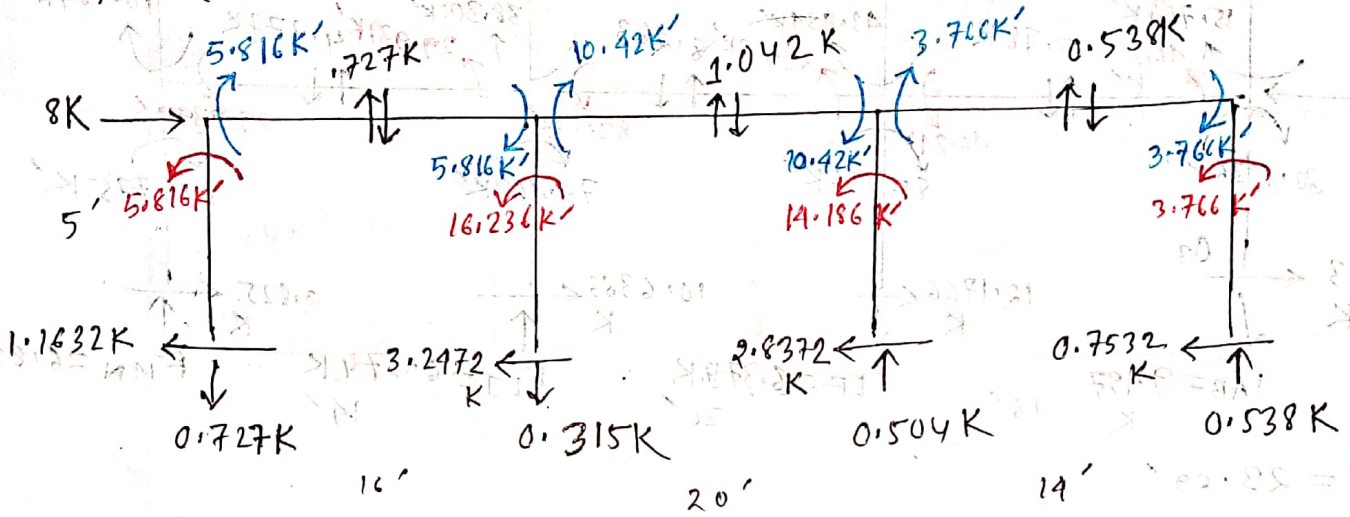 5.816K′
.727K
10.42K′
1.042K
3.766K′
0.538K
8K
5.816K′
10.42K′
3.766K′
5.816K′
16.236K′
14.186K′
3.766K′
5′
1.1632K
3.2472
K
2.8372
K
0.7532
K
0.727K
0.315K
0.504K
0.538K
16′
20′
14′